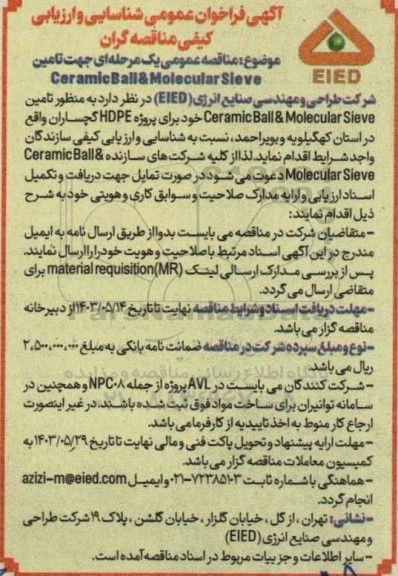 آگهی فراخوان عمومی شناسایی و ارزیابی
کیفی مناقصه گران
موضوع: مناقصه عمومی یک مرحله ای جهت تامین
Ceramic Ball & Molecular Sieve
EIED
شرکت طراحی و مهندسی صنایع انرژی (EIED) در نظر دارد به منظور تامین
Ceramic Ball & Molecular Sieve خود برای پروژه HDPE گچساران واقع
در استان کهگیلویه و بویراحمد، نسبت به شناسایی و ارزیابی کیفی سازندگان
واجد شرایط اقدام نماید. لذا از کلیه شرکت های سازنده Ceramic Ball &
Molecular Sieve دعوت می شود در صورت تمایل جهت دریافت و تکمیل
اسناد ارزیابی و ارایه مدارک صلاحیت و سوابق کاری و هویتی خود به شرح
ذیل اقدام نمایند:
- متقاضیان شرکت در مناقصه می بایست بدوا از طریق ارسال نامه به ایمیل
مندرج در این آگهی اسناد مرتبط با صلاحیت و هویت خود را ارسال نمایند.
پس از بررسی مدارک ارسالی لینک material requisition(MR) برای
متقاضی ارسال می گردد.
-مهلت دریافت اسناد و شرایط مناقصه نهایت تا تاریخ ۱۴۰۳/۰۵/۱۴ از دبیرخانه
مناقصه گزار می باشد.
-نوع و مبلغ سپرده شرکت در مناقصه ضمانت نامه بانکی به مبلغ ۲,۵۰۰,۰۰۰,۰۰۰
ریال می باشد.
- شرکت کنندگان می بایست در AVL پروژه از جمله NPC۰۸ و همچنین در
سامانه توانیران برای ساخت مواد فوق ثبت شده باشند، در غیر اینصورت
ارجاع کار منوط به اخذ تاییدیه از کارفرما می باشد.
- مهلت ارایه پیشنهاد و تحویل پاکت فنی و مالی نهایت تا تاریخ ۱۴۰۳/۰۵/۲۹ به
کمیسیون معاملات مناقصه گزار می باشد.
- هماهنگی با شماره ثابت ۷۲۳۸۵۱۰۳-۰۲۱ و ایمیل azizi-m@eied.com
انجام گردد.
-نشانی: تهران، ازگل، خیابان گلزار، خیابان گلشن، پلاک ۱۹ شرکت طراحی
و مهندسی صنایع انرژی (EIED)
-سایر اطلاعات و جزییات مربوط در اسناد مناقصه آمده است.